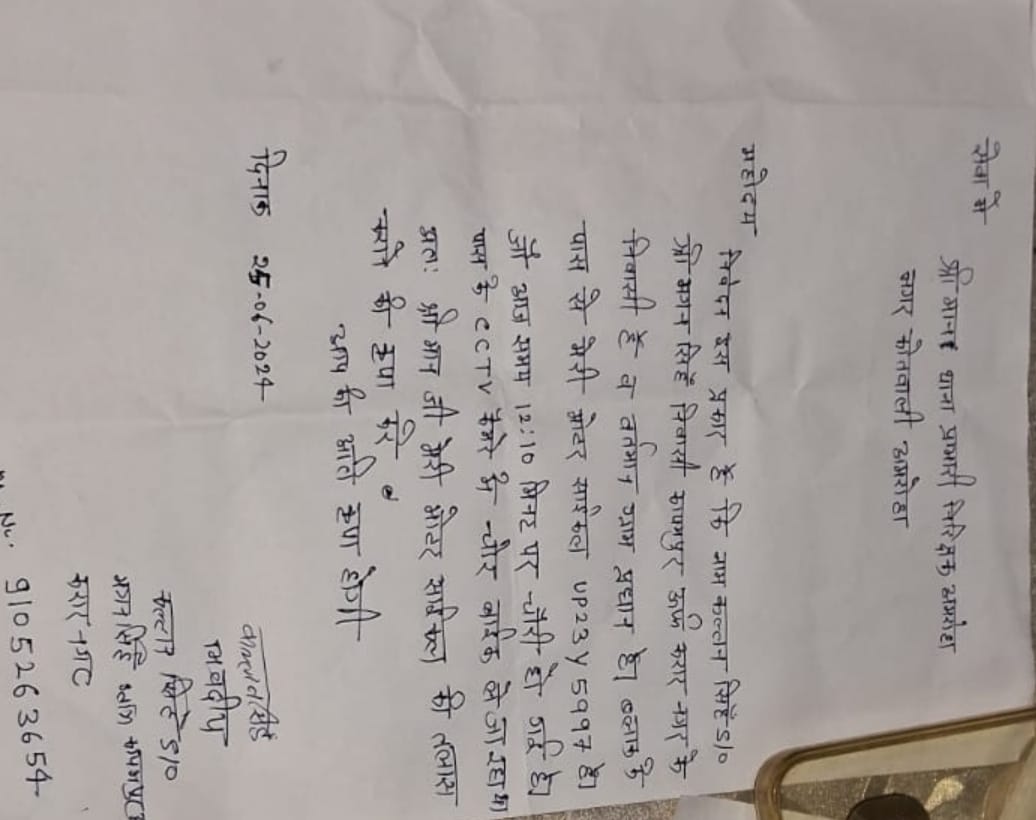 सेवा में
श्री मान थाना प्रभारी निरिक्षक अमरोहा
नगर कोतवाली अमरोहा
महोदय
निवेदन इस प्रकार है कि नाम कल्लन सिंह S/O
श्री भगन सिंह निवासी कायमपुर उर्फ करार नगर के
निवासी हैं व वर्तमान ग्राम प्रधान है। ब्लाक के
पास से मेरी मोटर साईकल UP23Y5997 है।
जो आज समय 12:10 मिनट पर चोरी हो गई है।
पास के CCTV कैमरे में चोर बाईक ले जा रहा था
अतः श्री मान जी मेरी मोटर साईकल की तलाश
करने की कृपा करें
आप की अति कृपा होगी
दिनांक 25-06-2024
भवदीय
कल्लन सिंह S/O
भगन सिंह ग्राम
करार नगर
9105263654